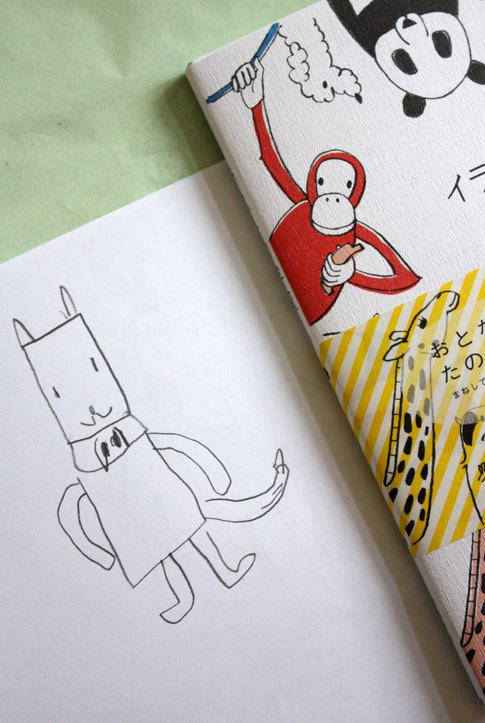 イラ
おとな
たの
まねして